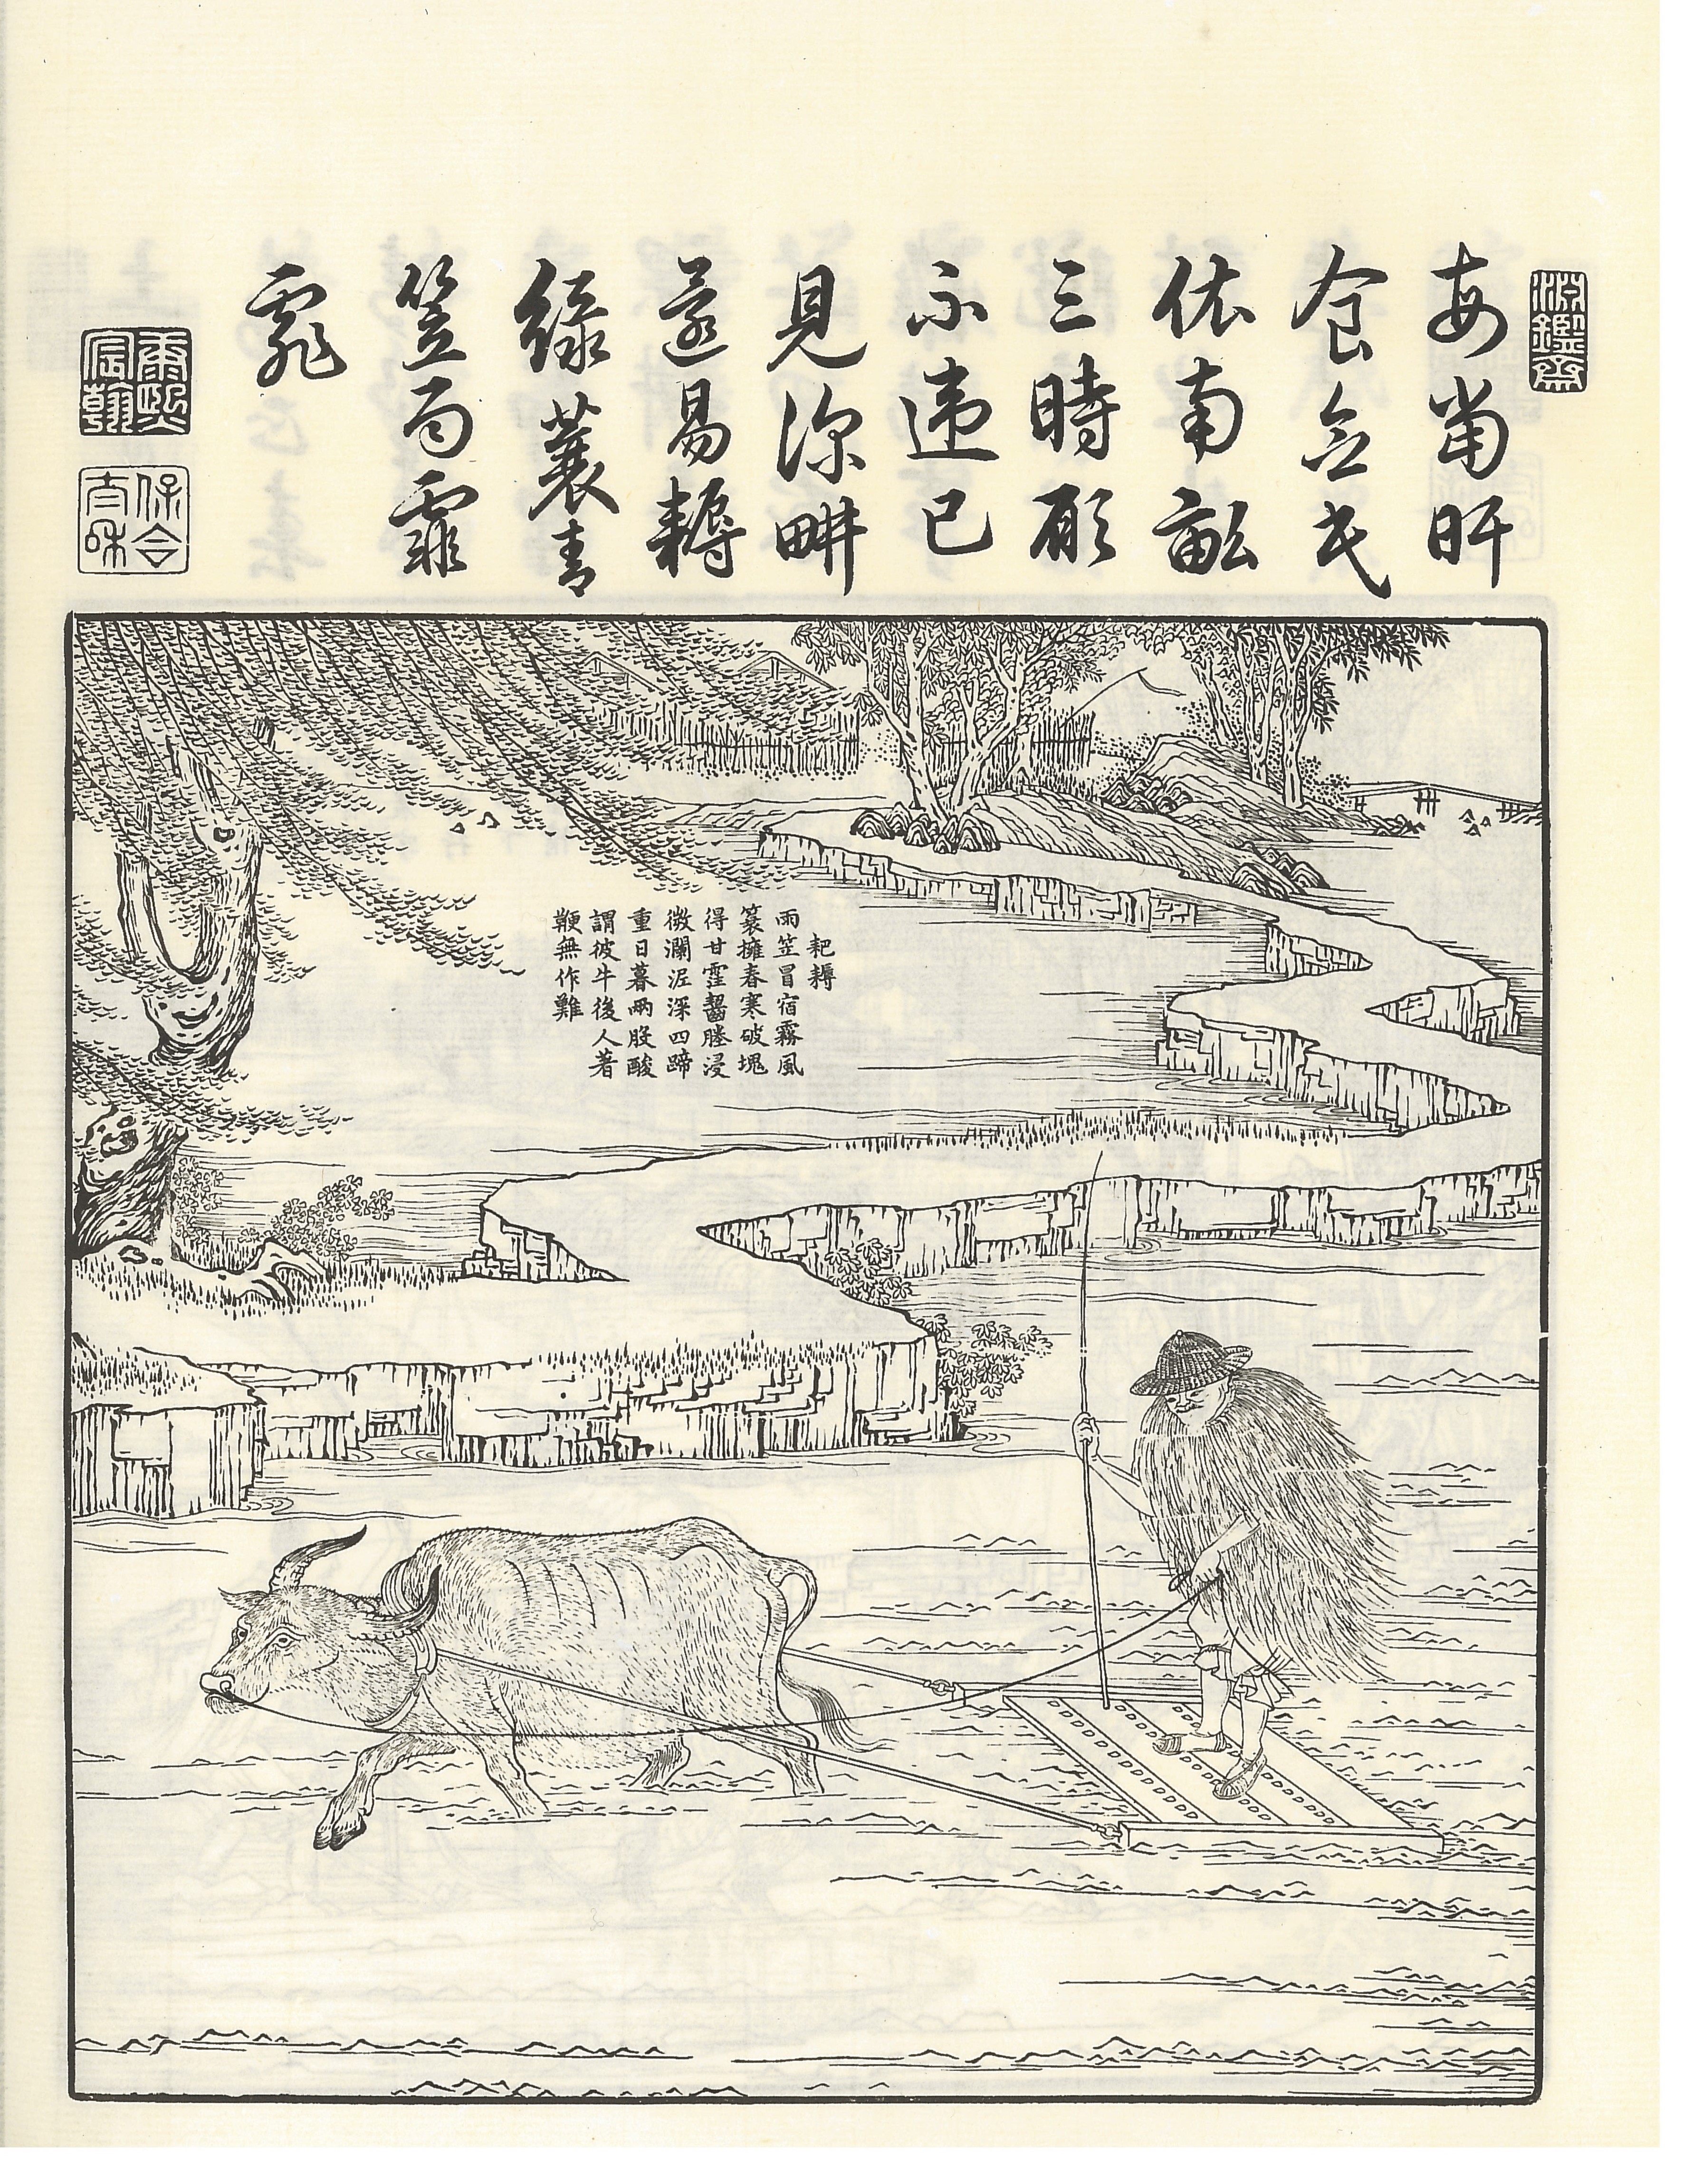 淵鑑齋
每當旰
食念民
依南畝
三時願
不違已
見深畊
還易耨
綠蓑青
笠雨霏
霏
康熙宸翰
保合太和
耙耨
雨笠冒宿霧風
簑擁春寒破塊
得甘霔齧塍浸
微瀾泥深四蹄
重日暮兩股酸
謂彼牛後人著
鞭無作難